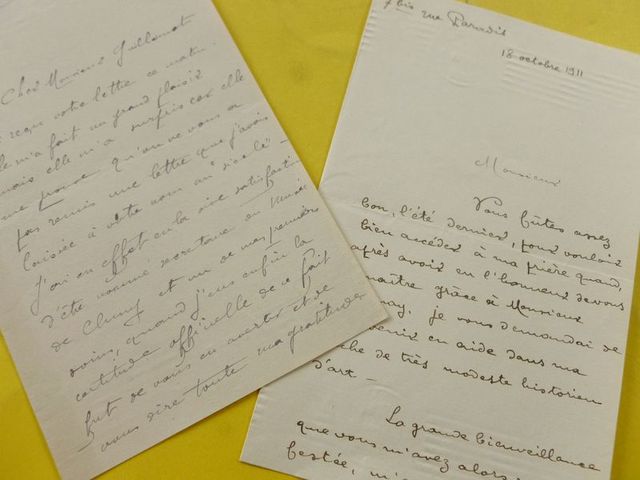 Cher Monsieur Guillemot
reçu votre lettre ce matin.
Elle m'a fait un grand plaisir
mais elle m'a surpris car elle
me prouve qu'on ne vous a
pas remis une lettre que j'avais
laissée à votre nom au
J'ai eu en effet la vive satisfaction
d'être nommé secrétaire du Musée
de Cluny et un de mes premiers
soins, quand j'eus enfin la
certitude officielle de ce fait
fut de vous en avertir et de
vous dire toute ma gratitude
7 bis rue Paradis
18 octobre 1911
Monsieur
Vous fûtes assez
bon, l'été dernier, pour vouloir
bien accéder à ma prière quand,
après avoir eu l'honneur de vous
naître grâce à Monsieur
nay, je vous demandai de
venir en aide dans ma
che de très modeste historien
d'art –
La grande bienveillance
que vous m'avez alors
festée, m'a